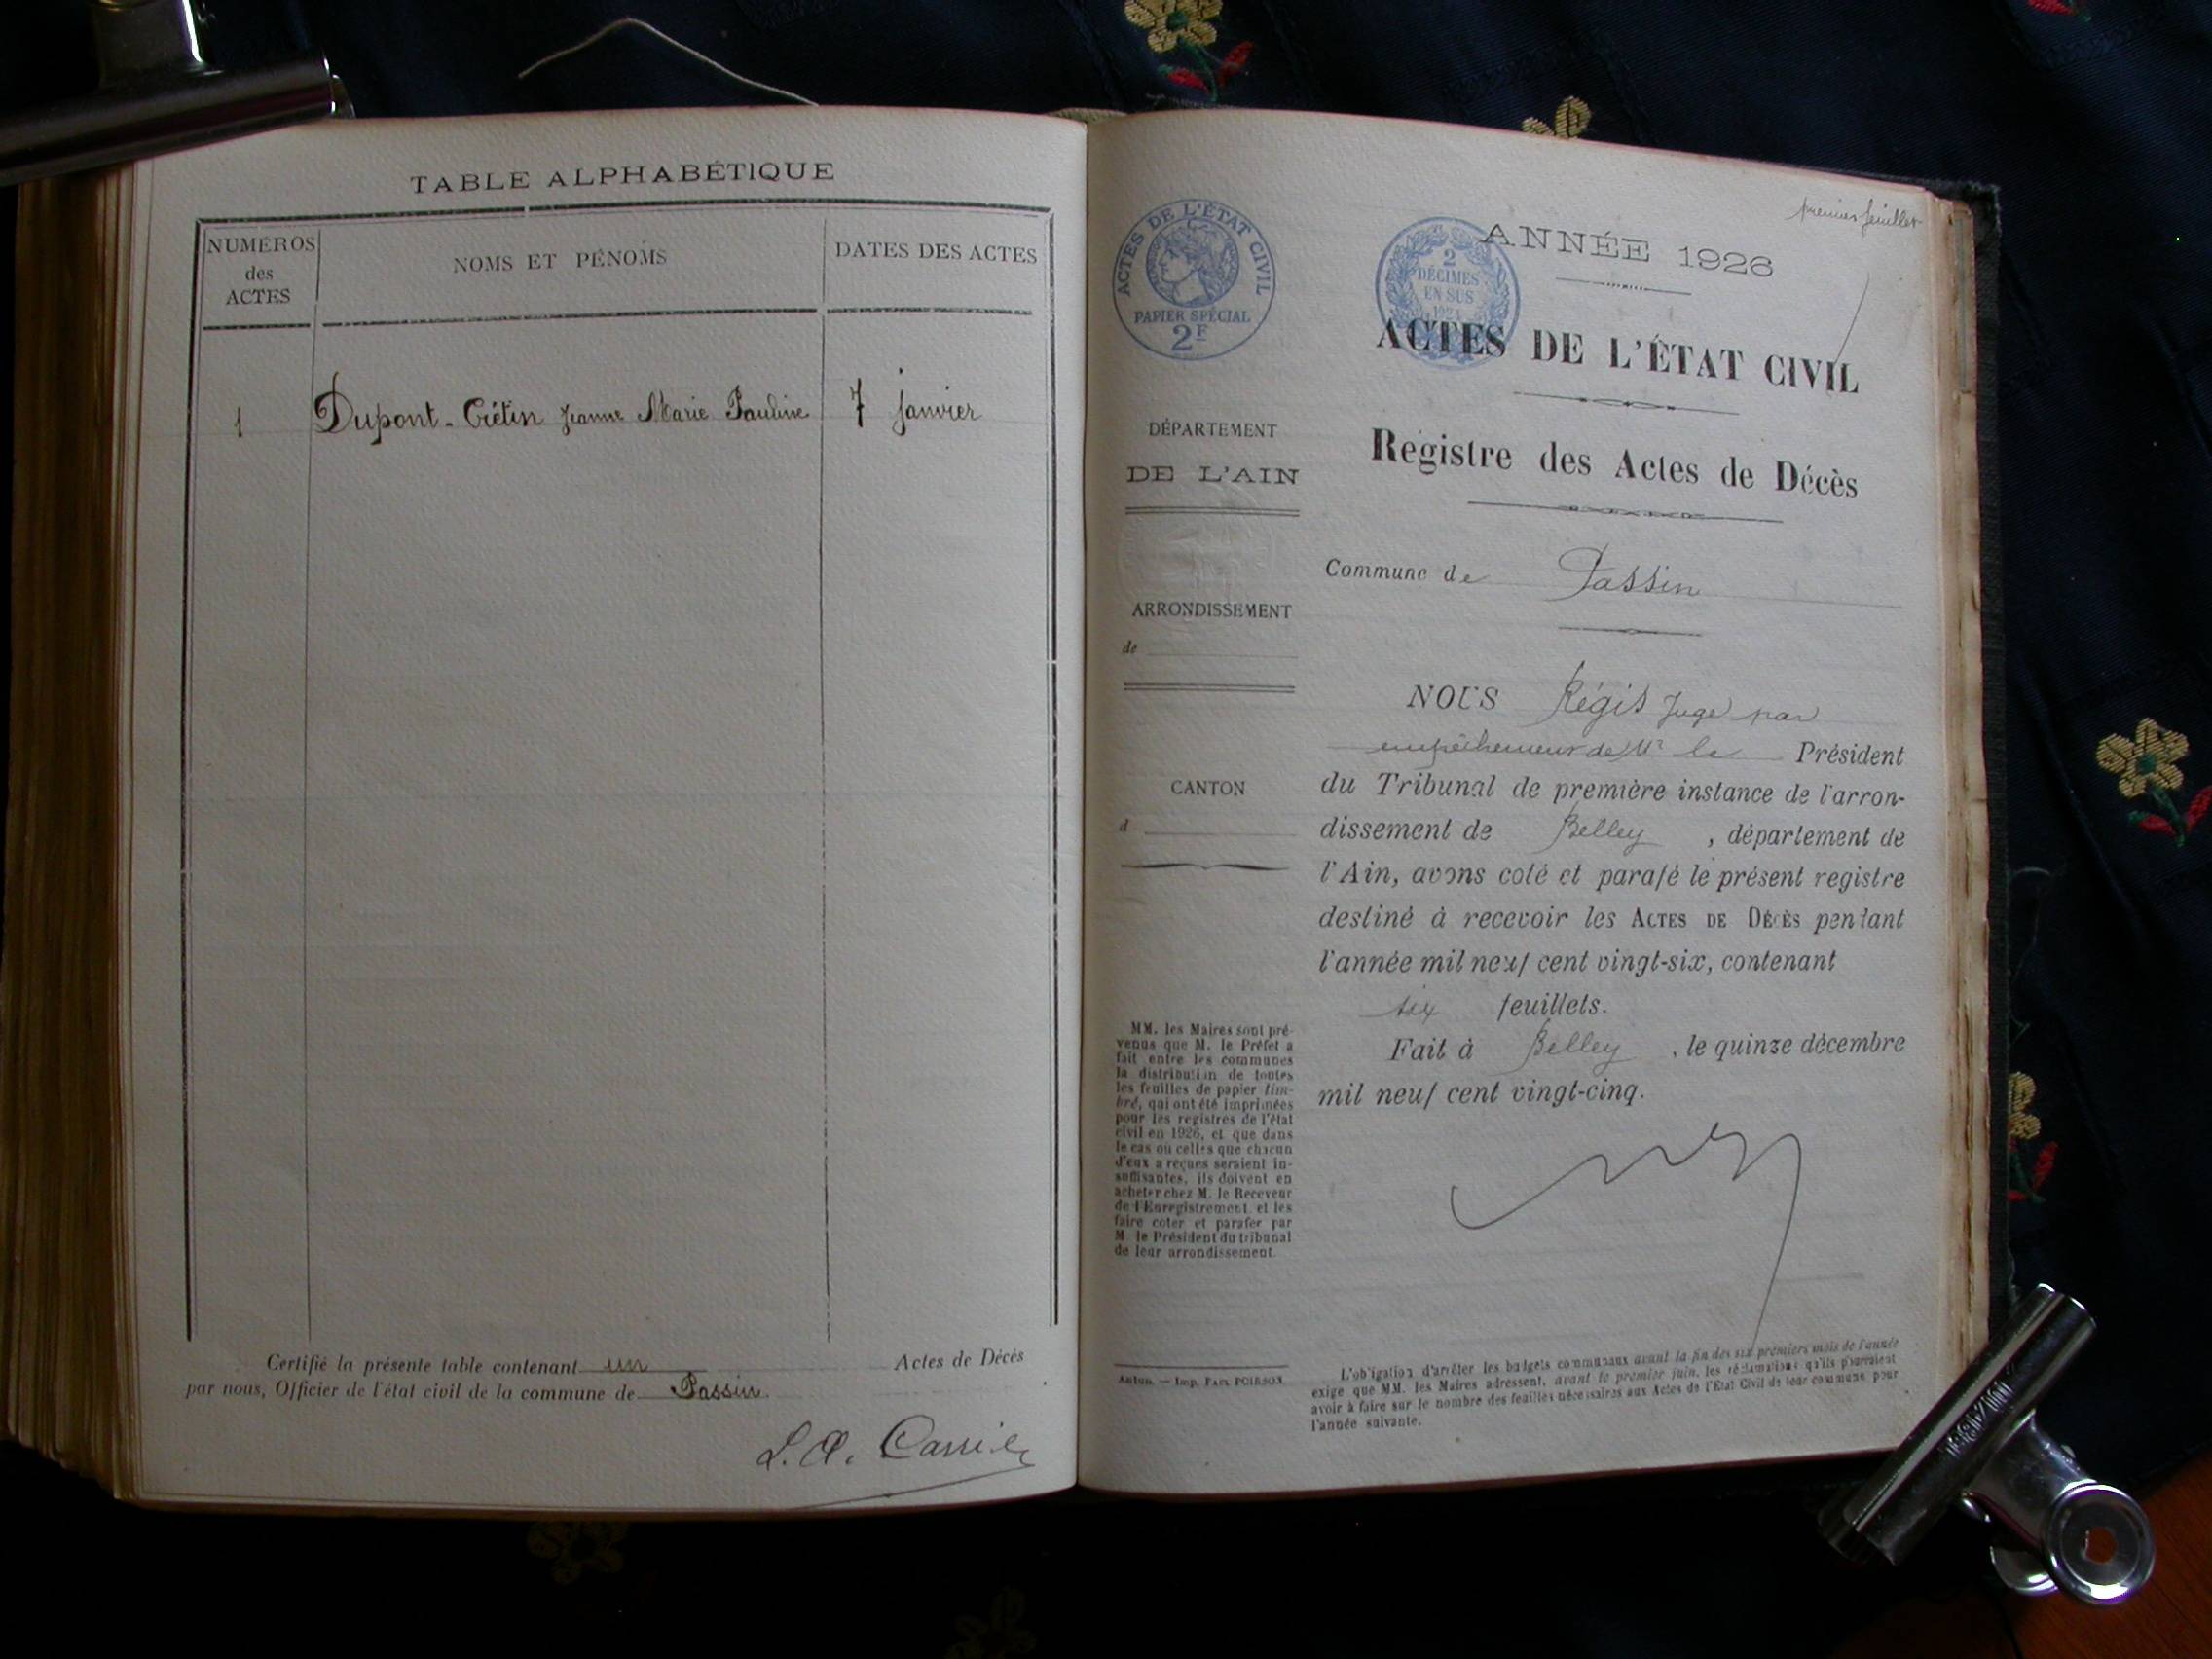 TABLE ALPHABÉTIQUE
NUMÉROS
des
ACTES
NOMS ET PÉNOMS
DATES DES ACTES
1 Dupont-Crétin Jeanne Marie Pauline 7 janvier
Certifié la présente table contenant un Actes de Décès
par nous, Officier de l'état civil de la commune de Passin.
L. A. Carrier
premier feuillet
ACTES DE L'ÉTAT CIVIL
PAPIER SPÉCIAL
2F
2
DÉCIMES
EN SUS
ANNÉE 1926
ACTES DE L'ÉTAT CIVIL
Registre des Actes de Décès
DÉPARTEMENT
DE L'AIN
ARRONDISSEMENT
de
CANTON
d
MM. les Maires sont pré-
venus que M. le Préfet a
fait entre les communes
la distribution de toutes
les feuilles de papier tim-
bré, qui ont été imprimées
pour les registres de l'état
civil en 1926, et que dans
le cas où celles que chacun
d'eux a reçues seraient in-
suffisantes, ils doivent en
acheter chez M. le Receveur
de l'Enregistrement et les
faire coter et parafer par
M. le Président du tribunal
de leur arrondissement.
Imp. PAUL POIRSON
Commune de Passin
NOUS Régis Juge par
empêchement de Mr le Président
du Tribunal de première instance de l'arron-
dissement de Belley, département de
l'Ain, avons coté et parafé le présent registre
destiné à recevoir les ACTES DE DÉCÈS pendant
l'année mil neuf cent vingt-six, contenant
six feuillets.
Fait à Belley, le quinze décembre
mil neuf cent vingt-cinq.
L'obligation d'arrêter les budgets communaux avant la fin des six premiers mois de l'année
exige que MM. les Maires adressent, avant le premier juin, les réclamations qu'ils pourraient
avoir à faire sur le nombre des feuilles nécessaires aux Actes de l'État Civil de leur commune pour
l'année suivante.